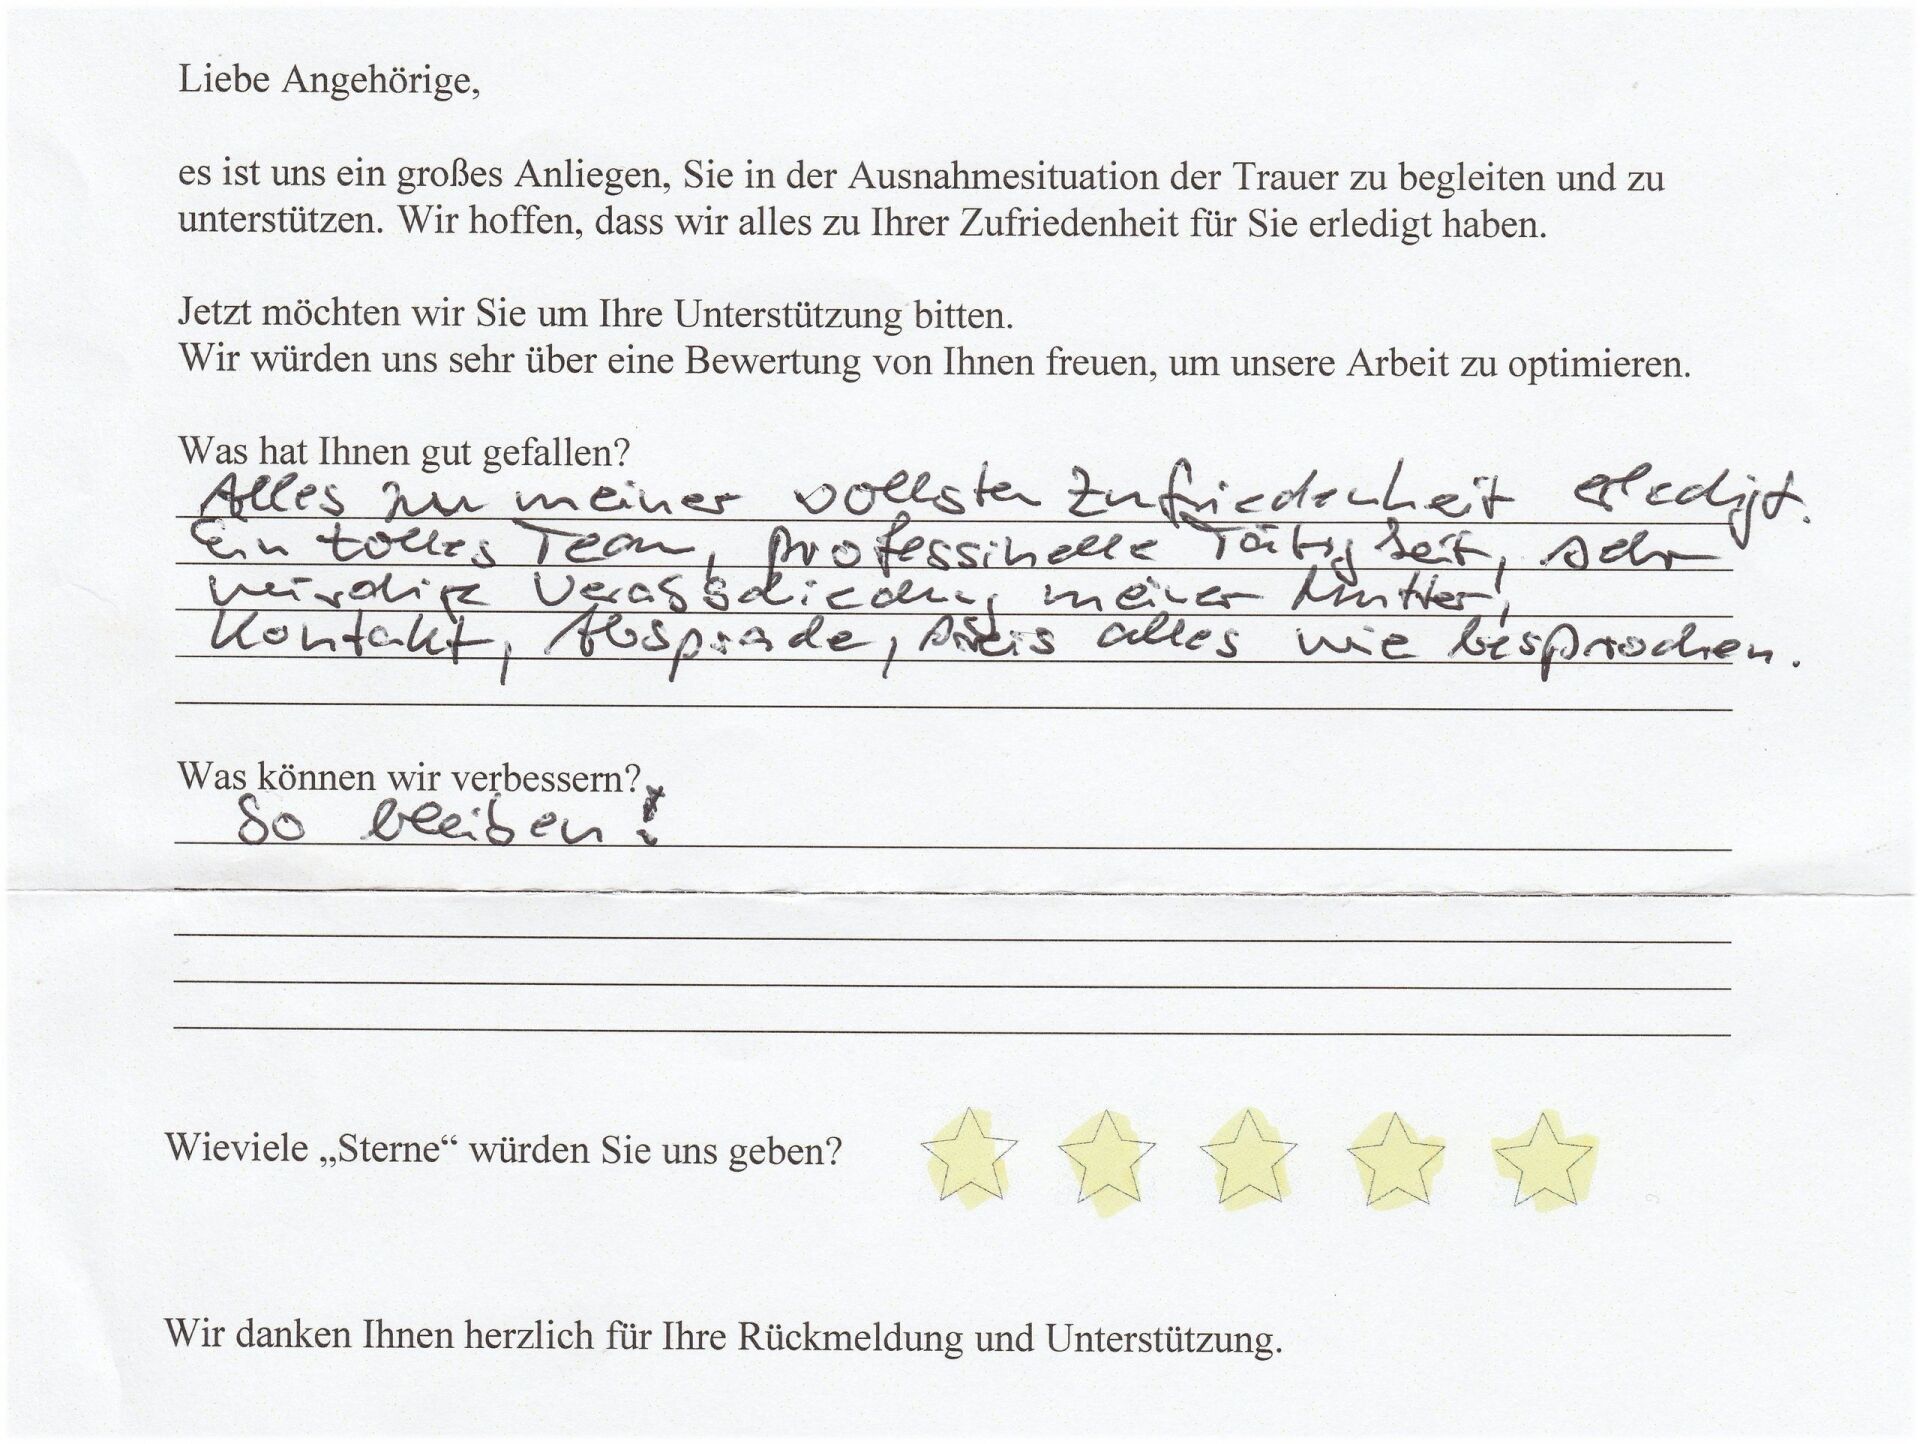 Liebe Angehörige,
es ist uns ein großes Anliegen, Sie in der Ausnahmesituation der Trauer zu begleiten und zu
unterstützen. Wir hoffen, dass wir alles zu Ihrer Zufriedenheit für Sie erledigt haben.
Jetzt möchten wir Sie um Ihre Unterstützung bitten.
Wir würden uns sehr über eine Bewertung von Ihnen freuen, um unsere Arbeit zu optimieren.
Was hat Ihnen gut gefallen?
Alles zu meiner vollsten Zufriedenheit erledigt.
Ein tolles Team, professinelle Tätigkeit, sehr
würdige meiner Mutter,
Kontakt, Absprache, Preis alles wie besprochen.
Was können wir verbessern?
So bleiben!
Wieviele „Sterne“ würden Sie uns geben?
Wir danken Ihnen herzlich für Ihre Rückmeldung und Unterstützung.